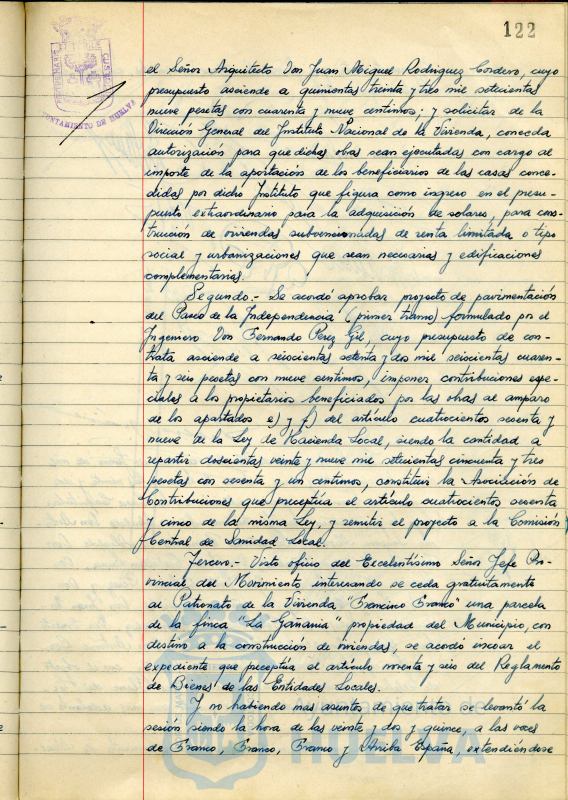 122
AYUNTAMIENTO DE HUELVA
el Señor Arquitecto Don Juan Miguel Rodriguez Cordero, cuyo
presupuesto asciende a quinientas treinta y tres mil setecientas
nueve pesetas con cuarenta y nueve centimos; y solicitar de la
Dirección General del Instituto Nacional de la Vivienda, conceda
autorización para que dichas obras sean ejecutadas con cargo al
importe de la aportación de los beneficiarios de las casas conce-
didas por dicho Instituto que figura como ingreso en el presu-
puesto extraordinario para la adquisición de solares, para cons-
trucción de viviendas subvencionadas de renta limitada o tipo
social y urbanizaciones que sean necesarias y edificaciones
complementarias.
Segundo.- Se acordó aprobar proyecto de pavimentación
del Paseo de la Independencia (primer tramo) formulado por el
Ingeniero Don Fernando Perez Gil, cuyo presupuesto de con-
trata asciende a seiscientas setenta y dos mil seiscientas cuaren-
ta y seis pesetas con nueve centimos, imponer contribuciones espe-
ciales a los propietarios beneficiados por las obras al amparo
de los apartados e) y f) del artículo cuatrocientos sesenta y
nueve de la Ley de Hacienda Local, siendo la cantidad a
repartir doscientas veinte y nueve mil setecientas cincuenta y tres
pesetas con sesenta y un centimos, constituir la Asociación de
Contribuciones que preceptúa el artículo cuatrocientos sesenta
y cinco de la misma Ley, y remitir el proyecto a la Comisión
Central de Sanidad Local.
Tercero.- Visto oficio del Excelentísimo Señor Jefe Pro-
vincial del Movimiento interesando se ceda gratuitamente
al Patronato de la Vivienda "Francisco Franco" una parcela
de la finca "La Gañania" propiedad del Municipio, con
destino a la construcción de viviendas, se acordó incoar el
expediente que preceptúa el artículo noventa y seis del Reglamento
de Bienes de las Entidades Locales.
Y no habiendo mas asuntos de que tratar se levantó la
sesión siendo la hora de las veinte y dos y quince, a las voces
de Franco, Franco, Franco y Arriba España, extendiéndose
HUELVA